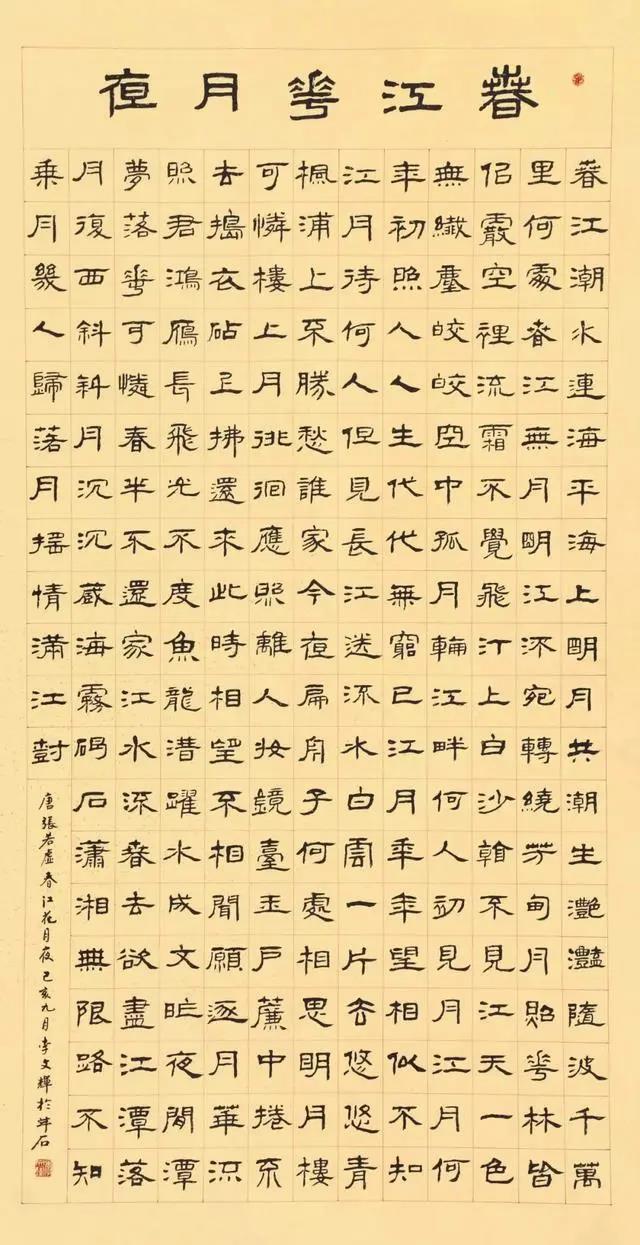 春江花月夜
春江潮水連海平海上明月共潮生灩灩隨波千萬
里何處春江無月明江流宛轉繞芳甸月照花林皆
似霰空裡流霜不覺飛汀上白沙看不見江天一色
無纖塵皎皎空中孤月輪江畔何人初見月江月何
年初照人人生代代無窮已江月年年望相似不知
江月待何人但見長江送流水白雲一片去悠悠青
楓浦上不勝愁誰家今夜扁舟子何處相思明月樓
可憐樓上月徘徊應照離人妝鏡臺玉戶簾中捲不
去搗衣砧上拂還來此時相望不相聞願逐月華流
照君鴻雁長飛光不度魚龍潛躍水成文昨夜閒潭
夢落花可憐春半不還家江水流春去欲盡江潭落
月復西斜斜月沉沉藏海霧碣石瀟湘無限路不知
乘月幾人歸落月搖情滿江樹
唐張若虛春江花月夜己亥九月李文輝於石